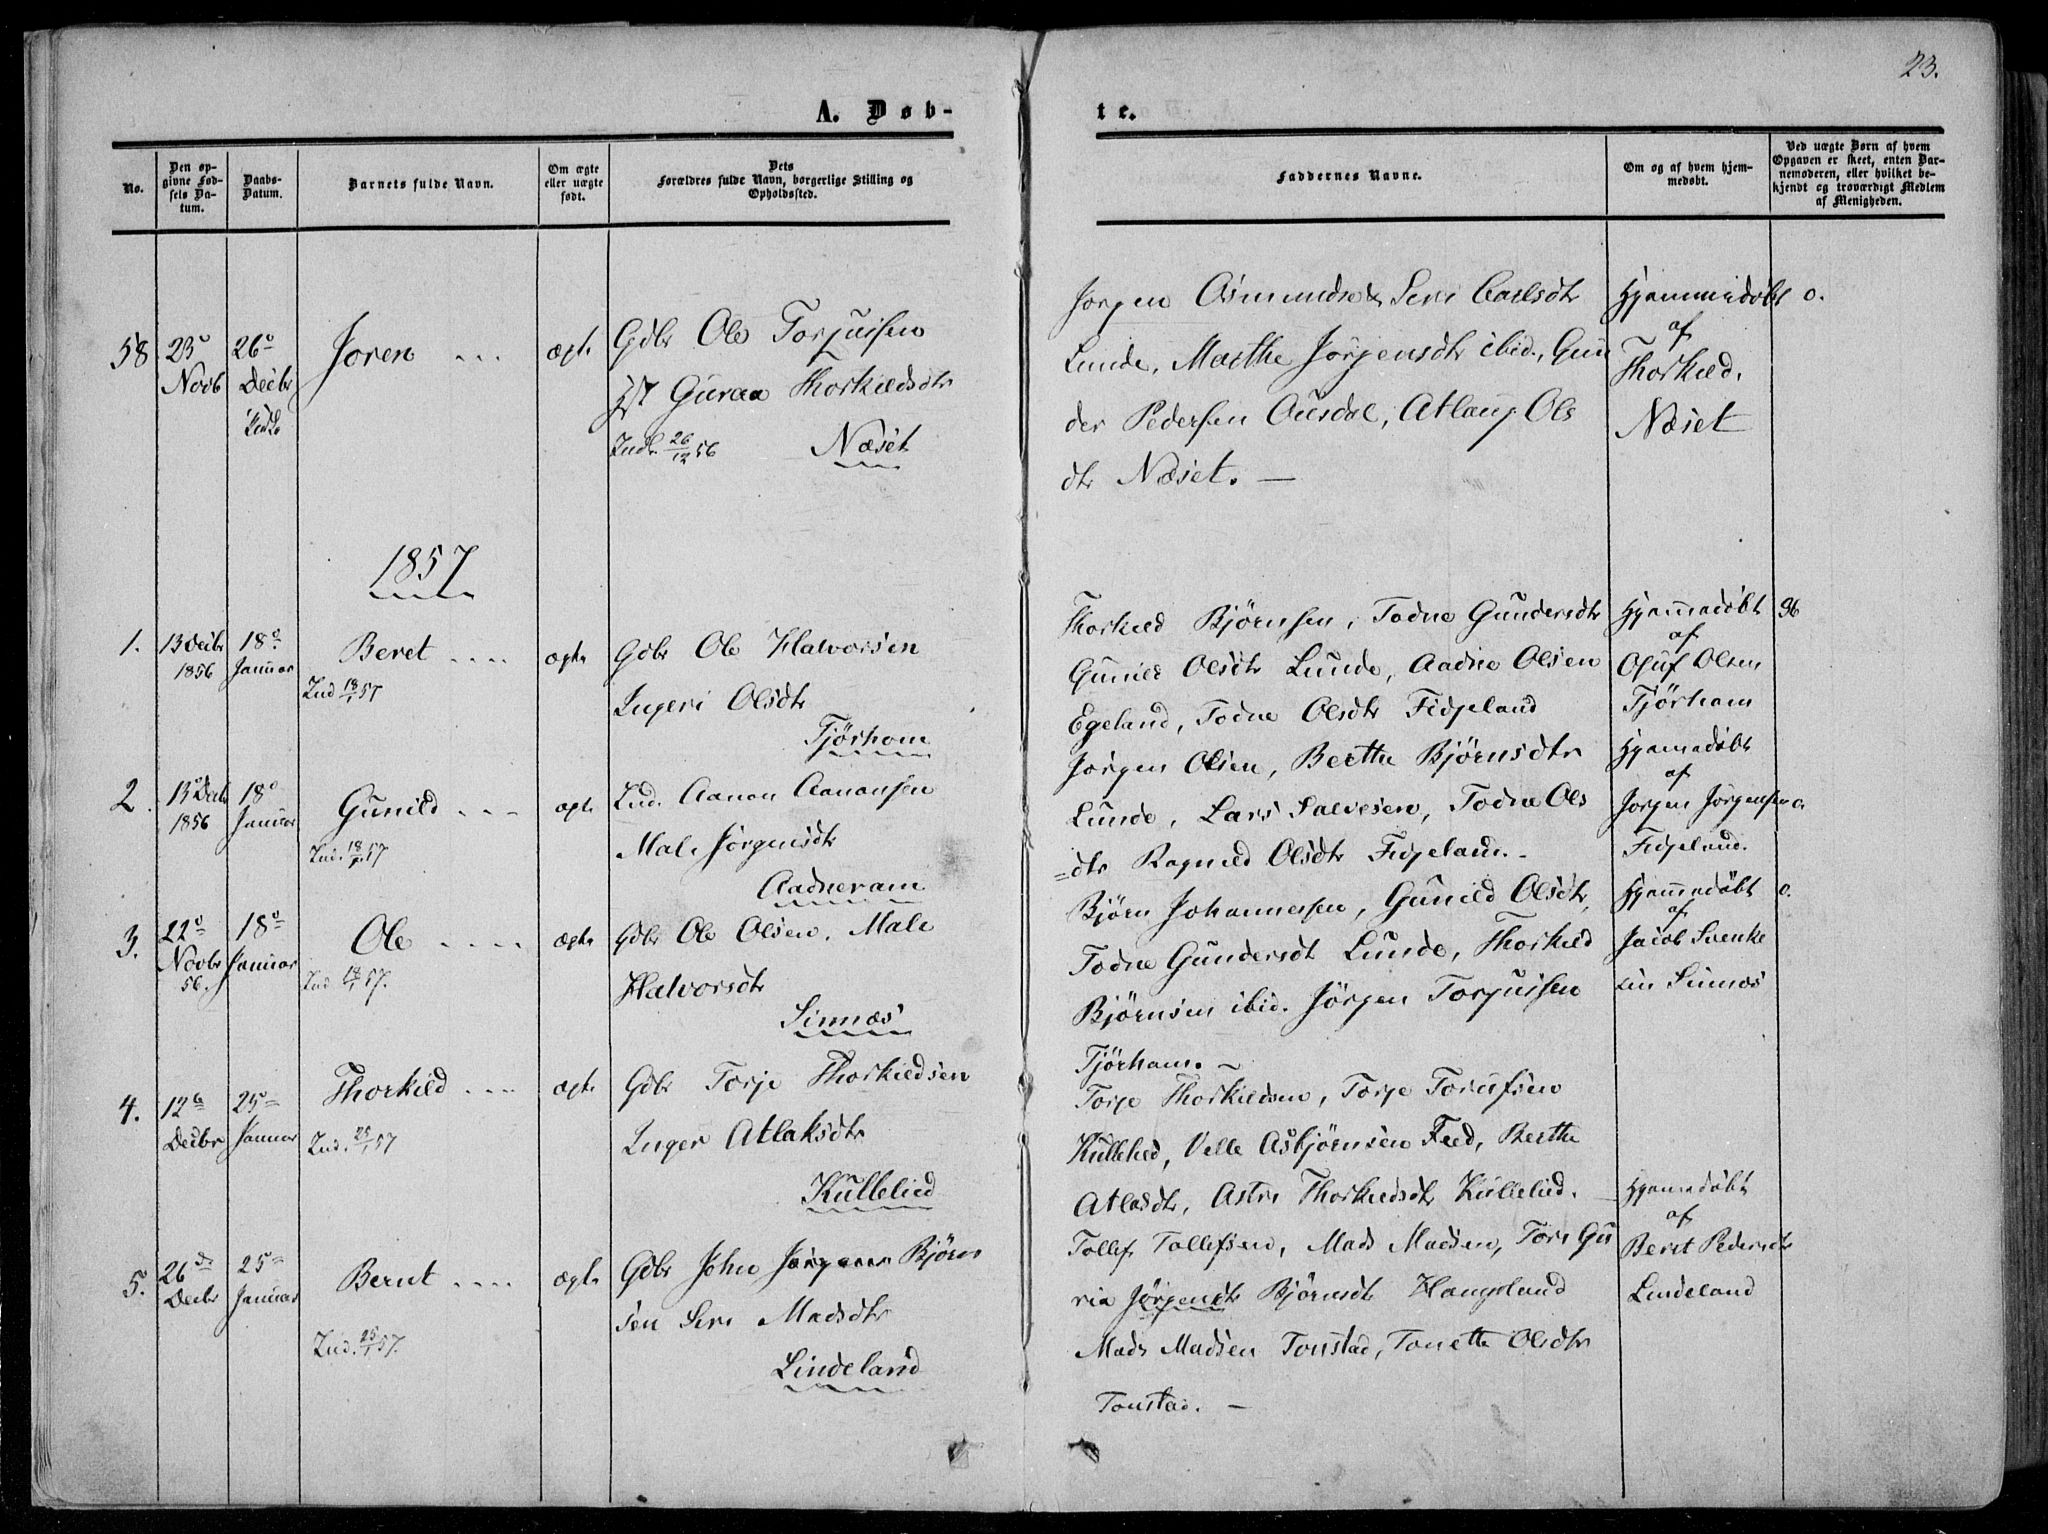 23.
A. Døb-
te.
No.
Den op-
givne Fød-
sels Da-
tum.
Daabs-
Datum.
Barnets fulde Navn.
Om ægte
eller uægte
født.
Dets
Forældres fulde Navn, borgerlige Stilling og
Opholdssted.
Faddernes Navne.
Om og af hvem hjem-
medøbt.
Ved uægte Børn af hvem
Opgaven er skeet, enten Bar-
nemoderen, eller hvilket be-
kjendt og troværdigt Medlem
af Menigheden.
58 23 Novb 26 Decbr
Joren
ægte
Gdbr Ole Torjuisen
Guraa Thorkildsdtr
26/12 56 Næset
Jørgen Osmundsen Seri Carlsdtr
Lunde, Marthe Jørgensdtr ibid., Gun
der Pedersen Ousdal, Atlaug Ols
dtr Næset. —
Hjemmedøbt
af
Thorkild
Næset
o.
1857
1. 13 Decbr 1856 18 Januar
Beret
Ind 18/1 57
ægte
Gdbr Ole Halvorsen
Ingeri Olsdtr
Tjørhom
Thorkild Bjørnsen, Todne Gundersdtr
Gunild Olsdtr Lunde, Aadne Olsen
Egeland, Todne Olsdtr Fidjeland
Hjemmedøbt
af
Oluf Olsen
Tjørhom
2. 13 Decbr 1856 18 Januar
Gunild
Ind. 18/1 57
ægte
Ind. Aanon Aanonsen
Male Jørgensdtr
Aadneram
Jørgen Olsen, Berthe Bjørnsdtr
Lunde, Lars Salvesen, Todne Ols
=dtr Ragnild Olsdtr Fidjeland. -
Hjemmedøbt
af
Jørgen Jørgensen
Fidjeland.
o
3. 22 Novbr 56. 18 Januar
Ole
Ind 18/1 57.
ægte
Gdbr Ole Olsen, Male
Halvorsdtr
Sinnæs
Bjørn Johannessen, Gunild Olsdtr,
Todne Gundersdt Lunde, Thorkild
Bjørnsen ibid. Jørgen Torjuisen
Tjørhom. —
Hjemmedøbt
af
Jacob Svenke
sen Sinnæs
o.
4. 12 Decbr 25 Januar
Thorkild
Ind. 25/1 57
ægte
Gdbr Torje Thorkildsen
Inger Atlaksdtr
Kullelied
Torje Thorkildsen, Torje
Kullelied, Velle Asbjørnsen Fred, Berthe
Atlasdtr, Astri Thorkildsdtr Kullelied. —
5. 26 Decbr 25 Januar
Bernt
Ind. 25/1 57.
ægte
Gdbr John Jørgens Bjørn
sen Seri Madsdtr
Lindeland
Tollef Tollefsen, Mads Madsen, Tore Gu
ria Jørgendtr Bjørnsdt Haugeland
Mads Madsen Tonstad, Tonette Olsdtr
Tonstad. —
Hjemmedøbt
af
Beret Pedersdt
Lindeland